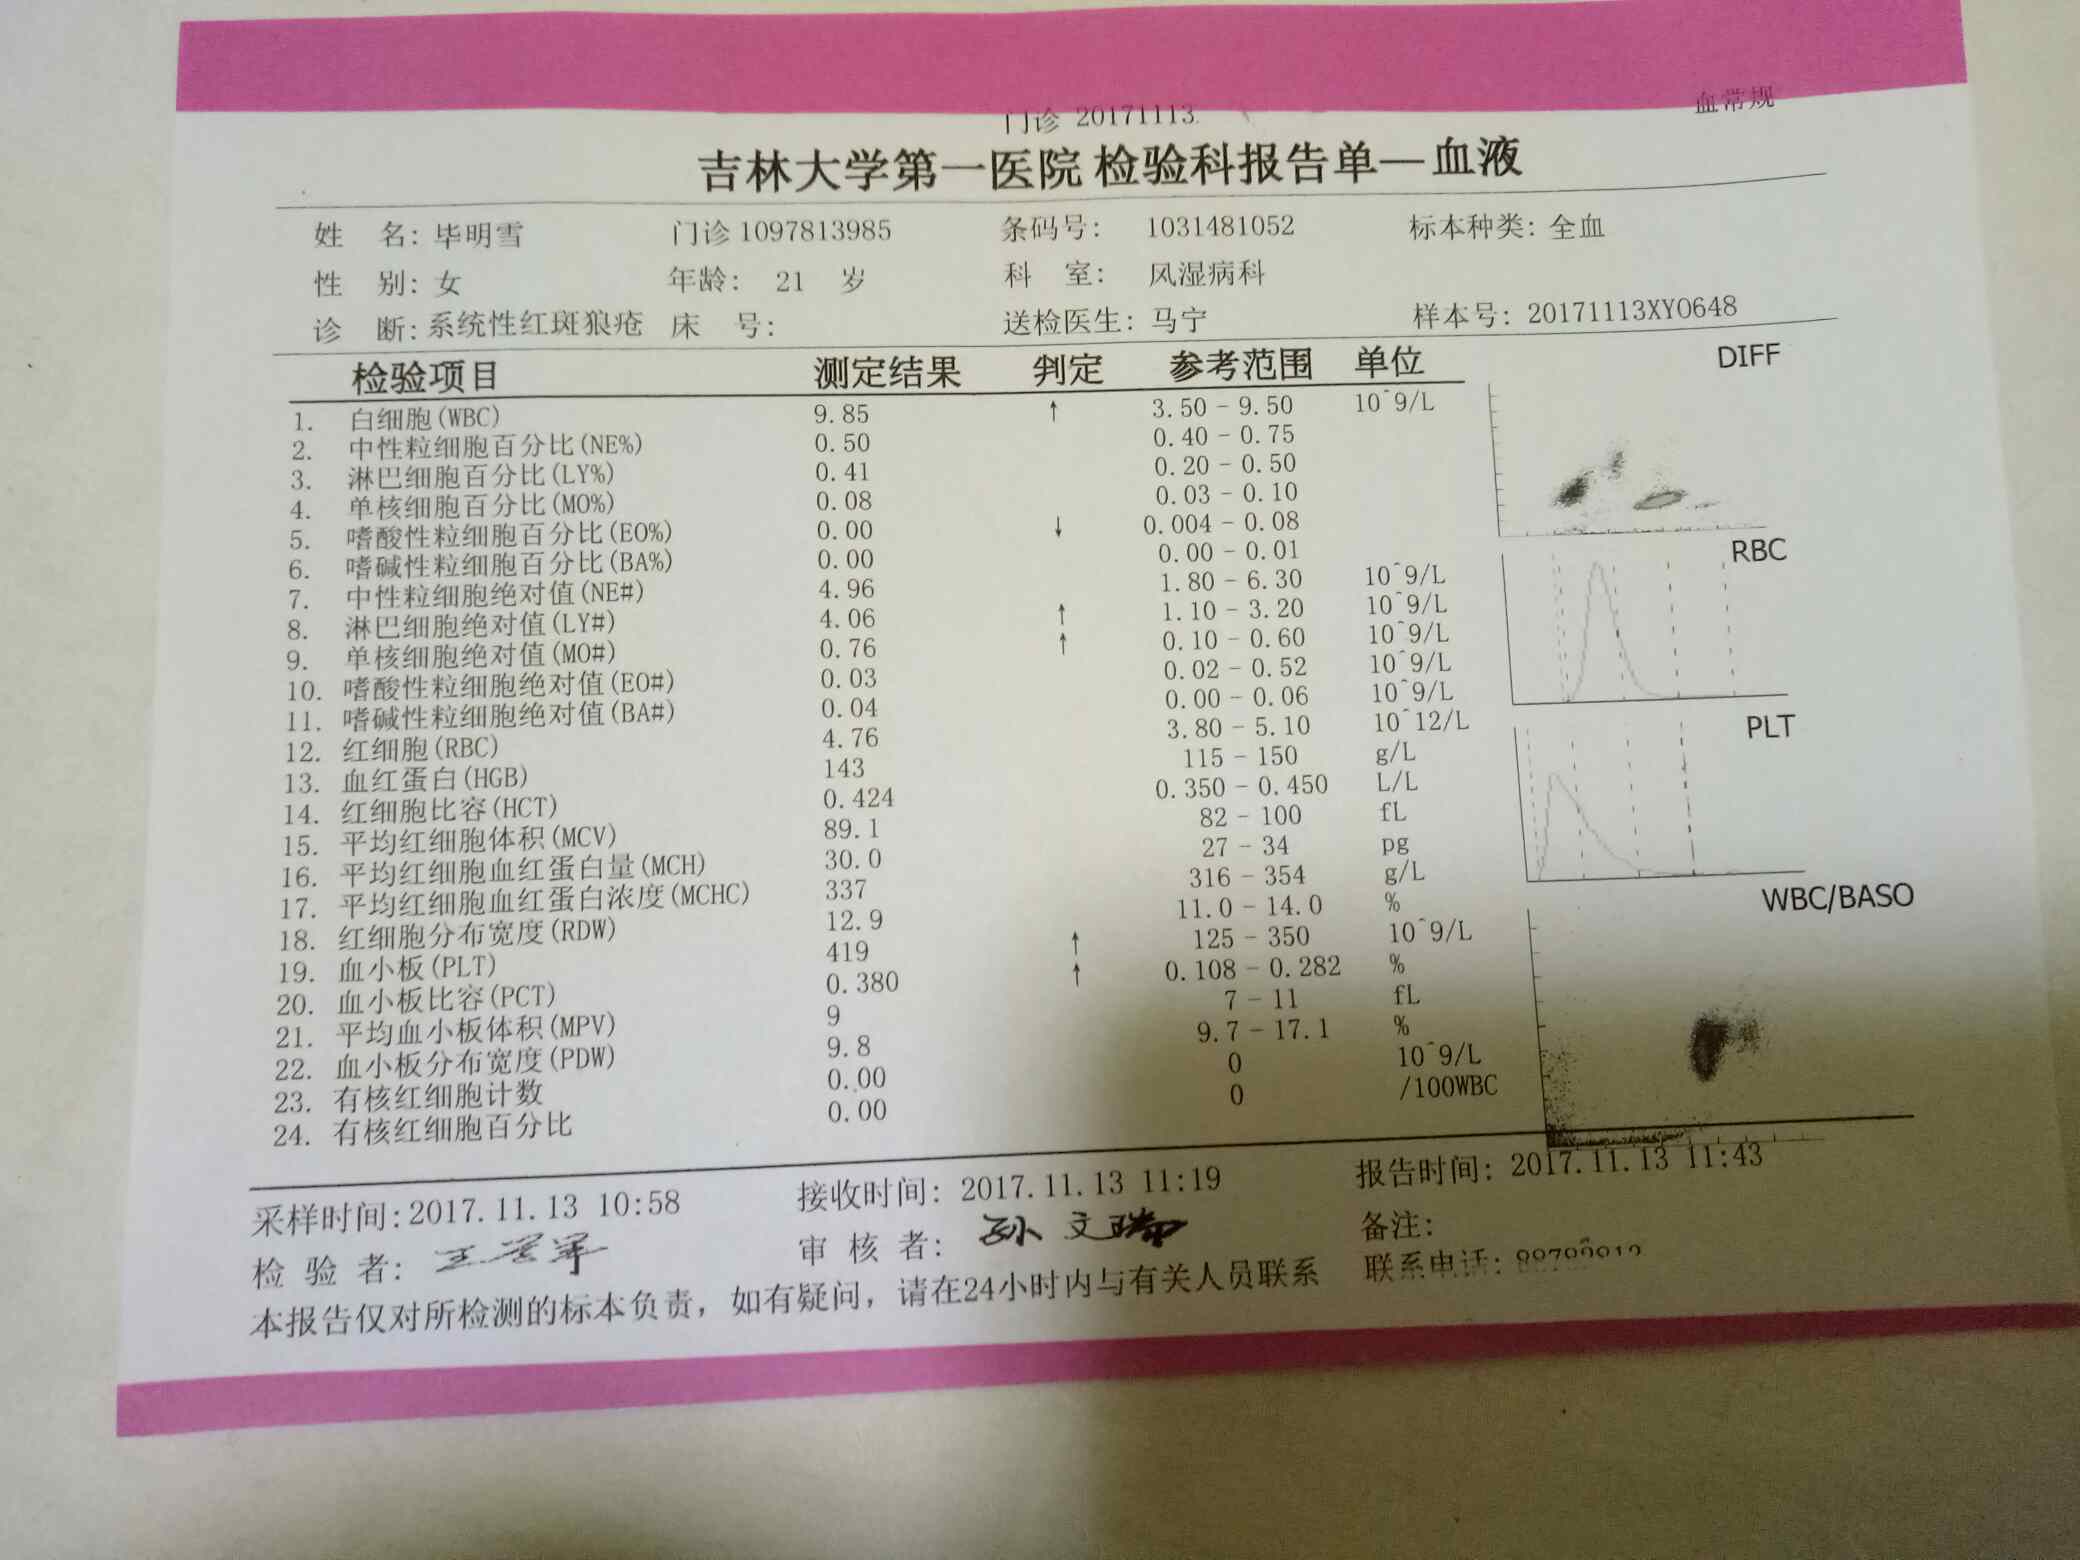 门诊 20171113
血常规
吉林大学第一医院 检验科报告单—血液
姓 名: 毕明雪 门诊 1097813985 条码号: 1031481052 标本种类: 全血
性 别: 女 年龄: 21 岁 科 室: 风湿病科
诊 断: 系统性红斑狼疮 床 号: 送检医生: 马宁 样本号: 20171113XY0648
检验项目 测定结果 判定 参考范围 单位
1. 白细胞(WBC) 9.85 ↑ 3.50-9.50 10^9/L
2. 中性粒细胞百分比(NE%) 0.50 0.40-0.75
3. 淋巴细胞百分比(LY%) 0.41 0.20-0.50
4. 单核细胞百分比(MO%) 0.08 0.03-0.10
5. 嗜酸性粒细胞百分比(EO%) 0.00 ↓ 0.004-0.08
6. 嗜碱性粒细胞百分比(BA%) 0.00 0.00-0.01
7. 中性粒细胞绝对值(NE#) 4.96 1.80-6.30 10^9/L
8. 淋巴细胞绝对值(LY#) 4.06 ↑ 1.10-3.20 10^9/L
9. 单核细胞绝对值(MO#) 0.76 ↑ 0.10-0.60 10^9/L
10. 嗜酸性粒细胞绝对值(EO#) 0.03 0.02-0.52 10^9/L
11. 嗜碱性粒细胞绝对值(BA#) 0.04 0.00-0.06 10^9/L
12. 红细胞(RBC) 4.76 3.80-5.10 10^12/L
13. 血红蛋白(HGB) 143 115-150 g/L
14. 红细胞比容(HCT) 0.424 0.350-0.450 L/L
15. 平均红细胞体积(MCV) 89.1 82-100 fL
16. 平均红细胞血红蛋白量(MCH) 30.0 27-34 pg
17. 平均红细胞血红蛋白浓度(MCHC) 337 316-354 g/L
18. 红细胞分布宽度(RDW) 12.9 11.0-14.0 %
19. 血小板(PLT) 419 ↑ 125-350 10^9/L
20. 血小板比容(PCT) 0.380 ↑ 0.108-0.282 %
21. 平均血小板体积(MPV) 9 7-11 fL
22. 血小板分布宽度(PDW) 9.8 9.7-17.1 %
23. 有核红细胞计数 0.00 0 10^9/L
24. 有核红细胞百分比 0.00 0 /100WBC
DIFF
RBC
PLT
WBC/BASO
采样时间:2017.11.13 10:58 接收时间: 2017.11.13 11:19 报告时间: 2017.11.13 11:43
检 验 者: 审 核 者: 孙文瑞 备注:
本报告仅对所检测的标本负责，如有疑问，请在24小时内与有关人员联系 联系电话: